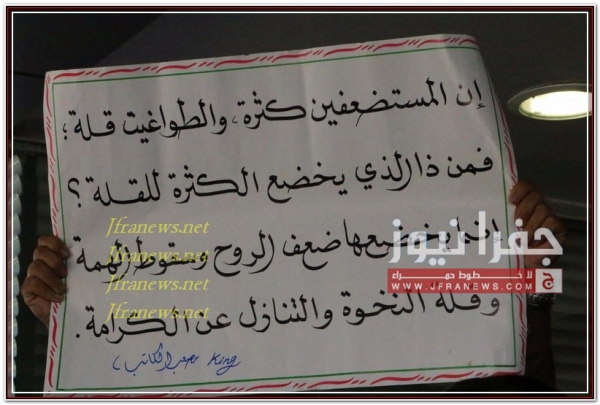 إن المستضعفين كثرة، والطواغيت قلة؛
فمن ذا الذي يخضع الكثرة للقلة؟
إنما يخضعها ضعف الروح وسقوط الهمة
وقلة النخوة والتنازل عن الكرامة.
King
Jfranews.net
Jfranews.net
Jfranews.net
Jfranews.net
جفرا نيوز
لا خطوط حمراء
WWW.JFRANEWS.COM